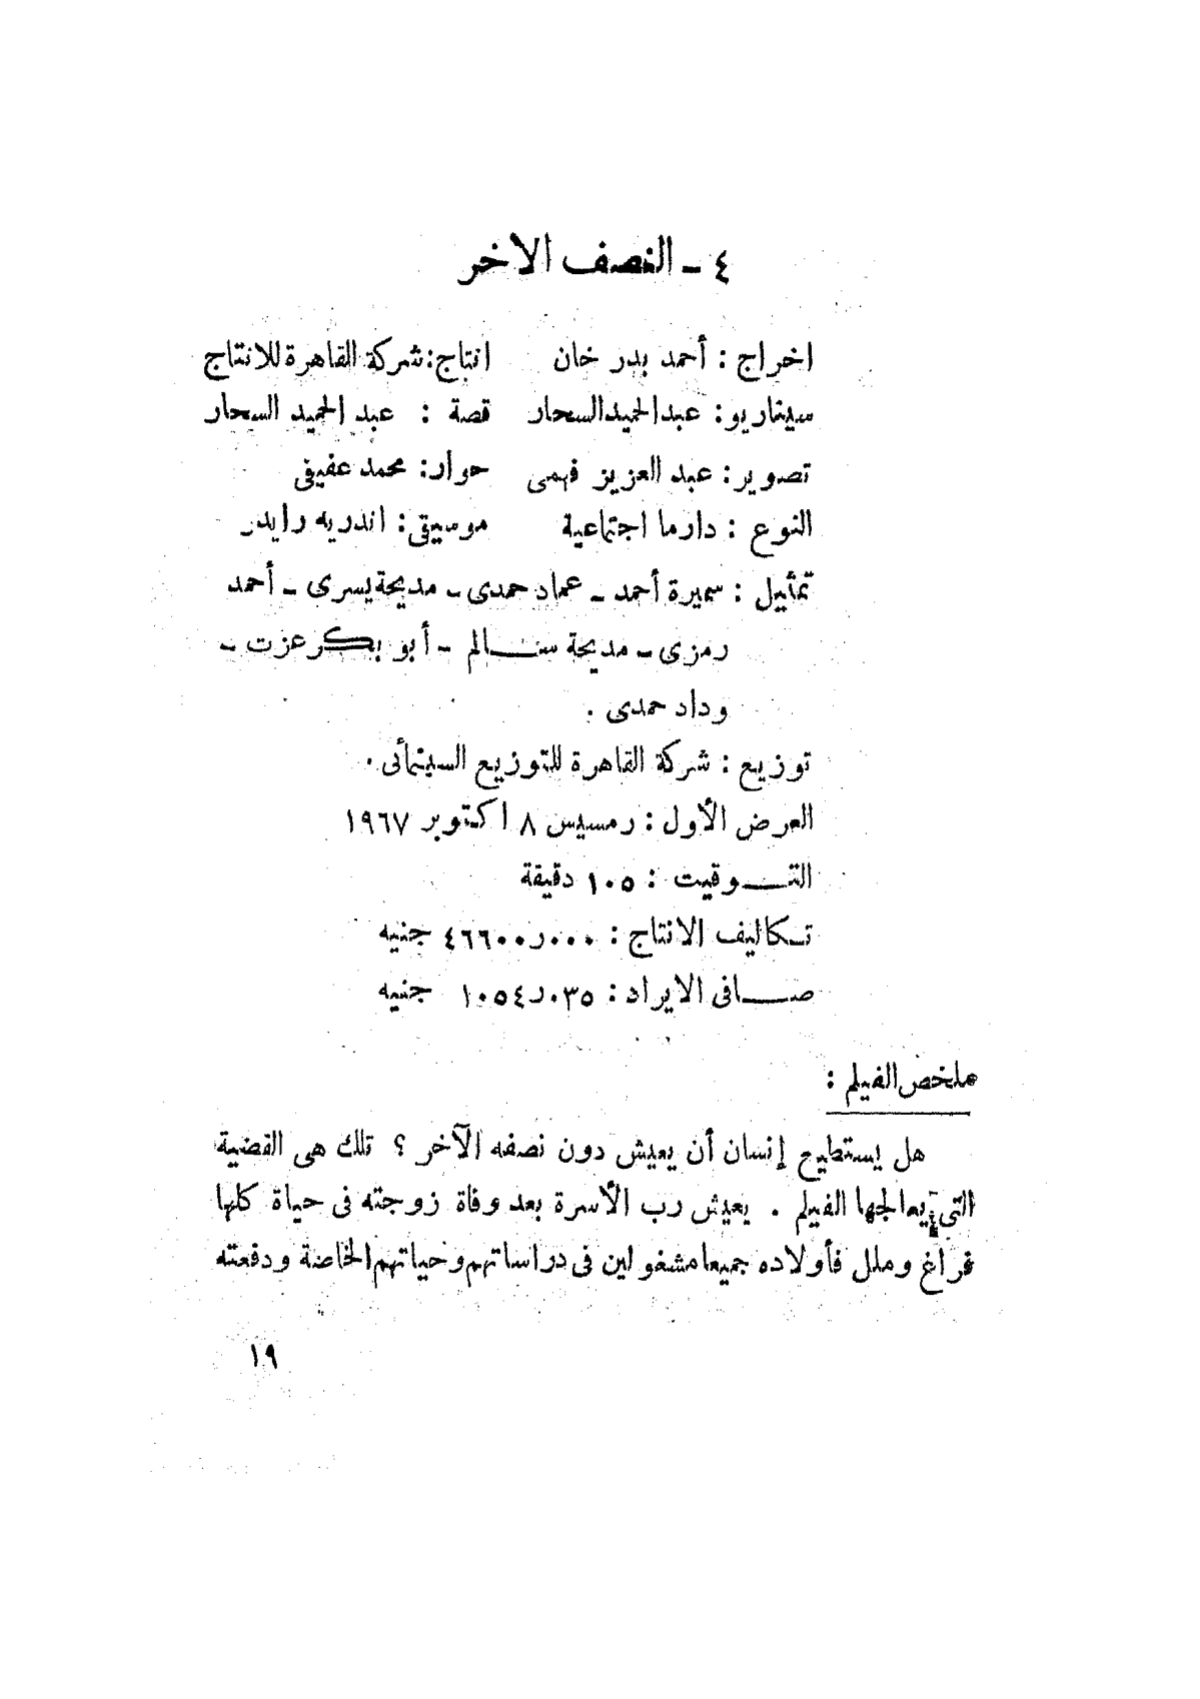 ٤ ـ النصف الاخر
اخراج : أحمد بدر خان انتاج : شركة القاهرة للانتاج
سيناريو : عبد الحميد السحار قصة : عبد الحميد السحار
تصوير : عبد العزيز فهمى حوار : محمد عفيفى
النوع : دارما اجتماعية موسيقى : اندريه رايدر
تمثيل : سميرة أحمد ـ عماد حمدى ـ مديحة يسرى ـ أحمد
رمزى ـ مديحة سالم ـ أبو بكر عزت ـ
وداد حمدى .
توزيع : شركة القاهرة للتوزيع السينمائى .
العرض الأول : رمسيس ٨ اكتوبر ١٩٦٧
التوقيت : ١٠٥ دقيقة
تكاليف الانتاج : ٤٦٦٠٠ر٠٠٠ جنيه
صافى الايراد : ١٠٥٤ر٠٣٥ جنيه
ملخص الفيلم :
هل يستطيع إنسان أن يعيش دون نصفه الآخر ؟ تلك هى القضية
التى يعالجها الفيلم . يعيش رب الأسرة بعد وفاة زوجته فى حياة كلها
فراغ وملل فأولاده جميعا مشغولين فى دراساتهم وحياتهم الخاصة ودفعته
١٩